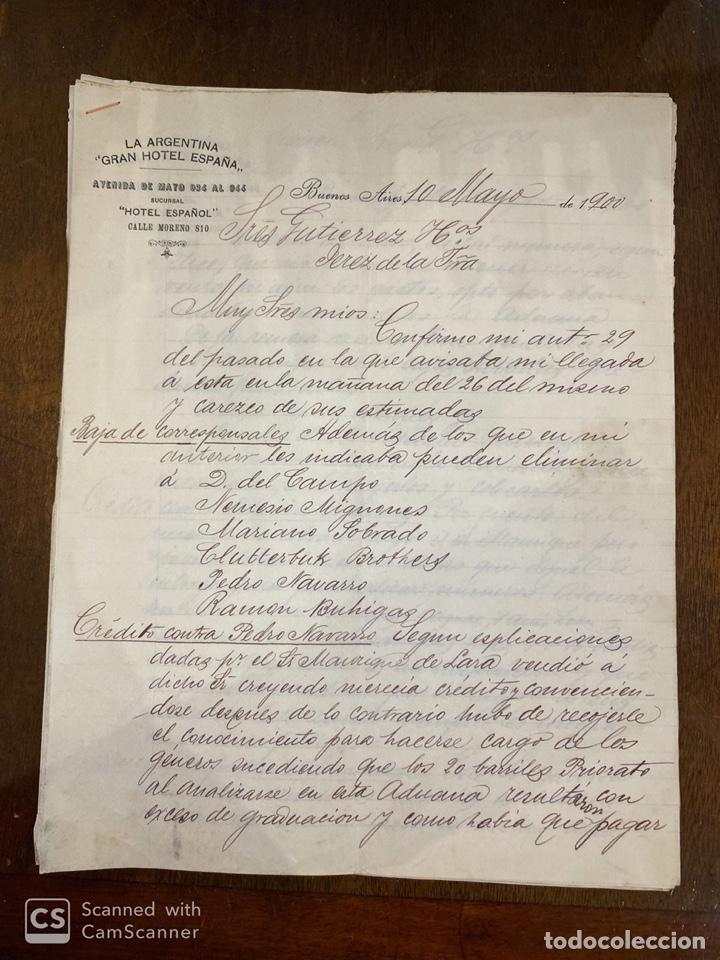 LA ARGENTINA
"GRAN HOTEL ESPAÑA"
AVENIDA DE MAYO 934 AL 944
SUCURSAL
"HOTEL ESPAÑOL"
CALLE MORENO 810
Buenos Aires 10 Mayo de 1900
Sres Gutierrez Hos
Jerez de la Fra
Muy Sres mios:
Confirmo mi antr 29
del pasado en la que avisaba mi llegada
á esta en la mañana del 26 del mismo
y carezco de sus estimadas
Baja de corresponsales Además de los que en mi
anterior les indicaba pueden eliminar
á D. del Campo
Nemesio Mignones
Mariano Sobrado
Clutterbuk Brothers
Pedro Navarro
Ramon Buhigas
Crédito contra Pedro Navarro Segun esplicaciones
dadas pr el Sr Manrique de Lara vendió á
dicho Sr creyendo merecia crédito y convencien-
dose despues de lo contrario hubo de recojerle
el conocimiento para hacerse cargo de los
géneros sucediendo que los 20 barriles Priorato
al analizarse en esta Aduana resultaron con
exceso de graduacion y como habia que pagar
CS Scanned with
CamScanner
todocoleccion